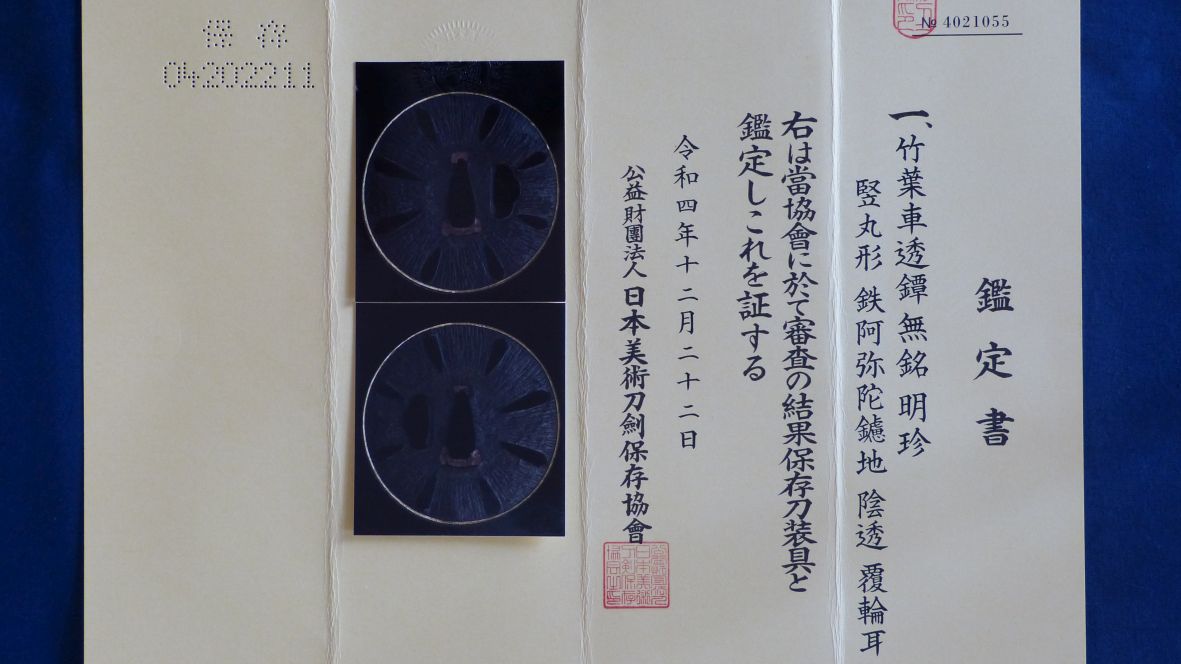 № 4021055
鑑定書
一、竹葉車透鐔 無銘 明珍
竪丸形 鉄阿弥陀鑢地 陰透 覆輪耳
右は當協會に於て審査の結果保存刀装具と
鑑定しこれを証する
令和四年十二月二十二日
公益財團法人日本美術刀劍保存協會
保存
04202211